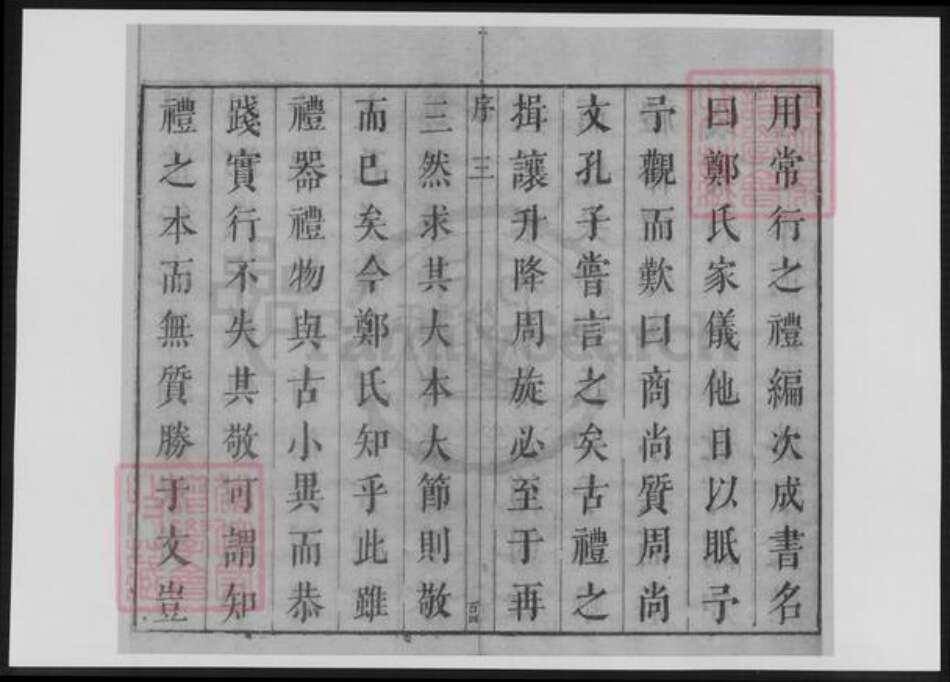 用常行之禮編次成書名
曰鄭氏家儀他日以眂予
予觀而歎曰商尚質周尚
文孔子嘗言之矣古禮之
揖讓升降周旋必至于再
序 三
百四
三然求其大本大節則敬
而已矣今鄭氏知乎此雖
禮器禮物與古小異而恭
踐實行不失其敬可謂知
禮之本而無質勝于文豈
FamilySearch